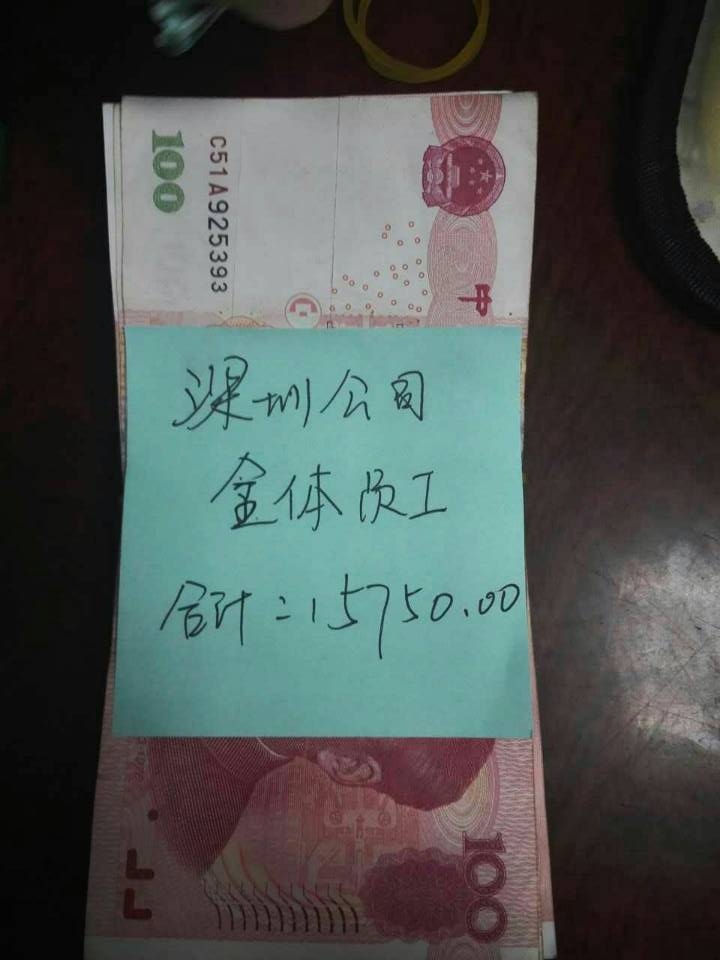 100
C51A925393
中
深圳公司
全体员工
合计:15750.00
100